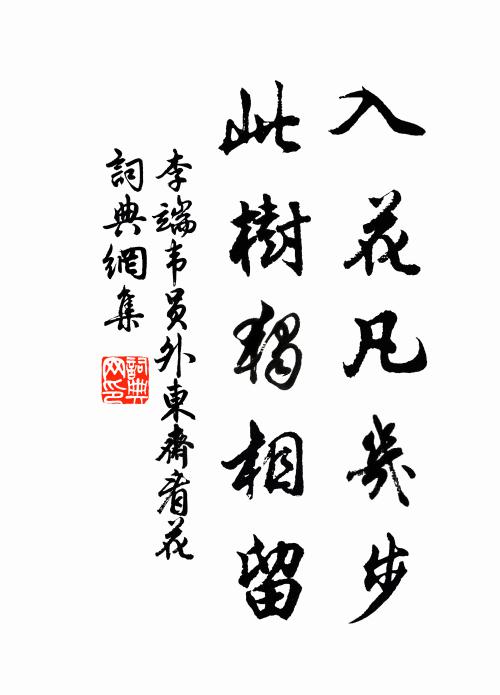 入花凡幾步
此樹獨相留
李端韦員外東齋看花
詞典網集
詞典網印